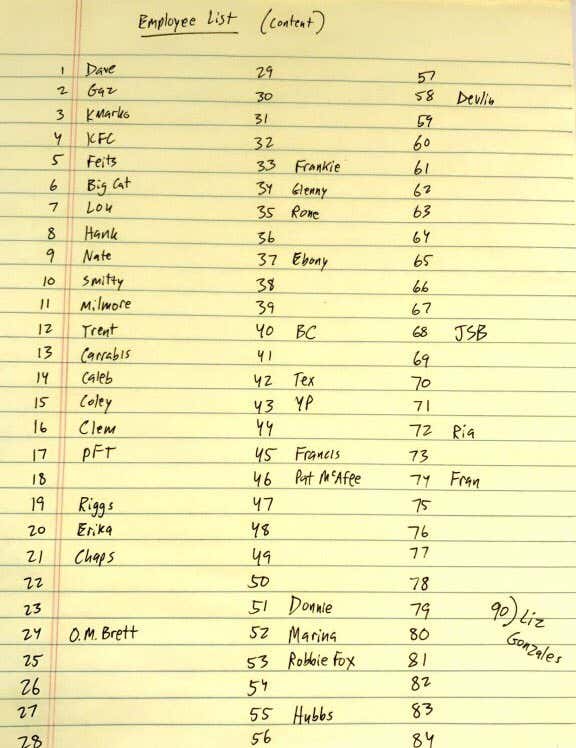 Employee List (content)
1 Dave
2 Gaz
3 KMarko
4 KFC
5 Feits
6 Big Cat
7 Lou
8 Hank
9 Nate
10 Smitty
11 Milmore
12 Trent
13 Carrabis
14 Caleb
15 Coley
16 Clem
17 PFT
18
19 Riggs
20 Erika
21 Chaps
22
23
24 O.M. Brett
25
26
27
28
29
30
31
32
33 Frankie
34 Glenny
35 Rone
36
37 Ebony
38
39
40 BC
41
42 Tex
43 YP
44
45 Francis
46 Pat McAfee
47
48
49
50
51 Donnie
52 Marina
53 Robbie Fox
54
55 Hubbs
56
57
58 Devlin
59
60
61
62
63
64
65
66
67
68 JSB
69
70
71
72 Ria
73
74 Fran
75
76
77
78
79
80
81
82
83
84
90) Liz
Gonzales